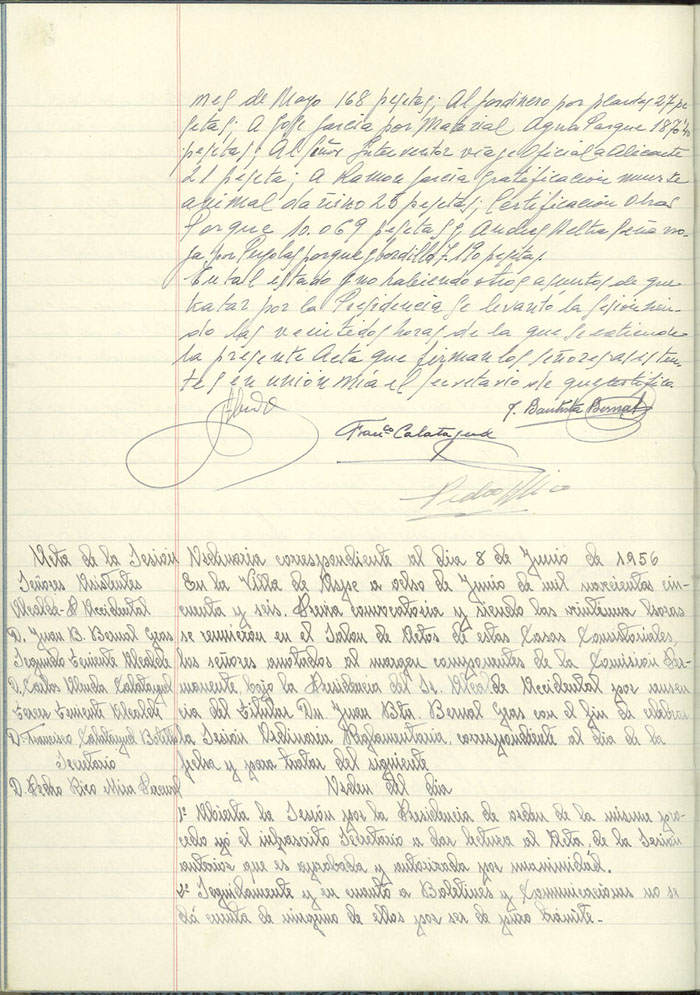 mes de Mayo 168 pesetas; Al Jardinero por plantas 27 pe-
setas; A José García por Material Agua Parque 1870
pesetas; Al Señor Interventor viaje Oficial a Alicante
21 peseta; A Ramon García gratificacion muerte
animal dañino 25 pesetas; Certificacion Obras
Parque 10.069 pesetas y Andres Beltra
por parque y bordillo 7.190 pesetas.
En tal estado y no habiendo otros asuntos de que
tratar por la Presidencia se levantó la sesión sien-
do las veintidos horas de la que se extiende
la presente Acta que firman los señores asisten-
tes en union mía el Secretario de que certifico
J. Bautista Bernal
Franco Calatayud
Pedro Rico
Acta de la Sesión Ordinaria correspondiente al dia 8 de Junio de 1956
Señores Asistentes
Alcalde-P Accidental
D. Juan B. Bernal Gras
Segundo Teniente Alcalde
D. Carlos Calatayud
Tercer Teniente Alcalde
D. Francisco Calatayud Botella
Secretario
D. Pedro Rico Mira Pascual
En la Villa de Aspe a ocho de Junio de mil novecientos cin-
cuenta y seis. Previa convocatoria y siendo las veintiuna horas
se reunieron en el Salon de Actos de estas Casas Consistoriales,
los señores anotados al margen componentes de la Comision Per-
manente bajo la Presidencia del Sr. Alcalde Accidental por ausen-
cia del Titular Dn Juan Bta. Bernal Gras con el fin de celebrar
la Sesión Ordinaria Reglamentaria, correspondiente al dia de la
fecha y para tratar del siguiente
Orden del dia
1º Abierta la Sesión por la Presidencia de orden de la misma pro-
cedo yó el infrascrito Secretario a dar lectura al Acta de la Sesión
anterior que es aprobada y autorizada por unanimidad.
2º Seguidamente y en cuanto a Boletines y Comunicaciones no se
dá cuenta de ninguno de ellos por ser de puro trámite.-